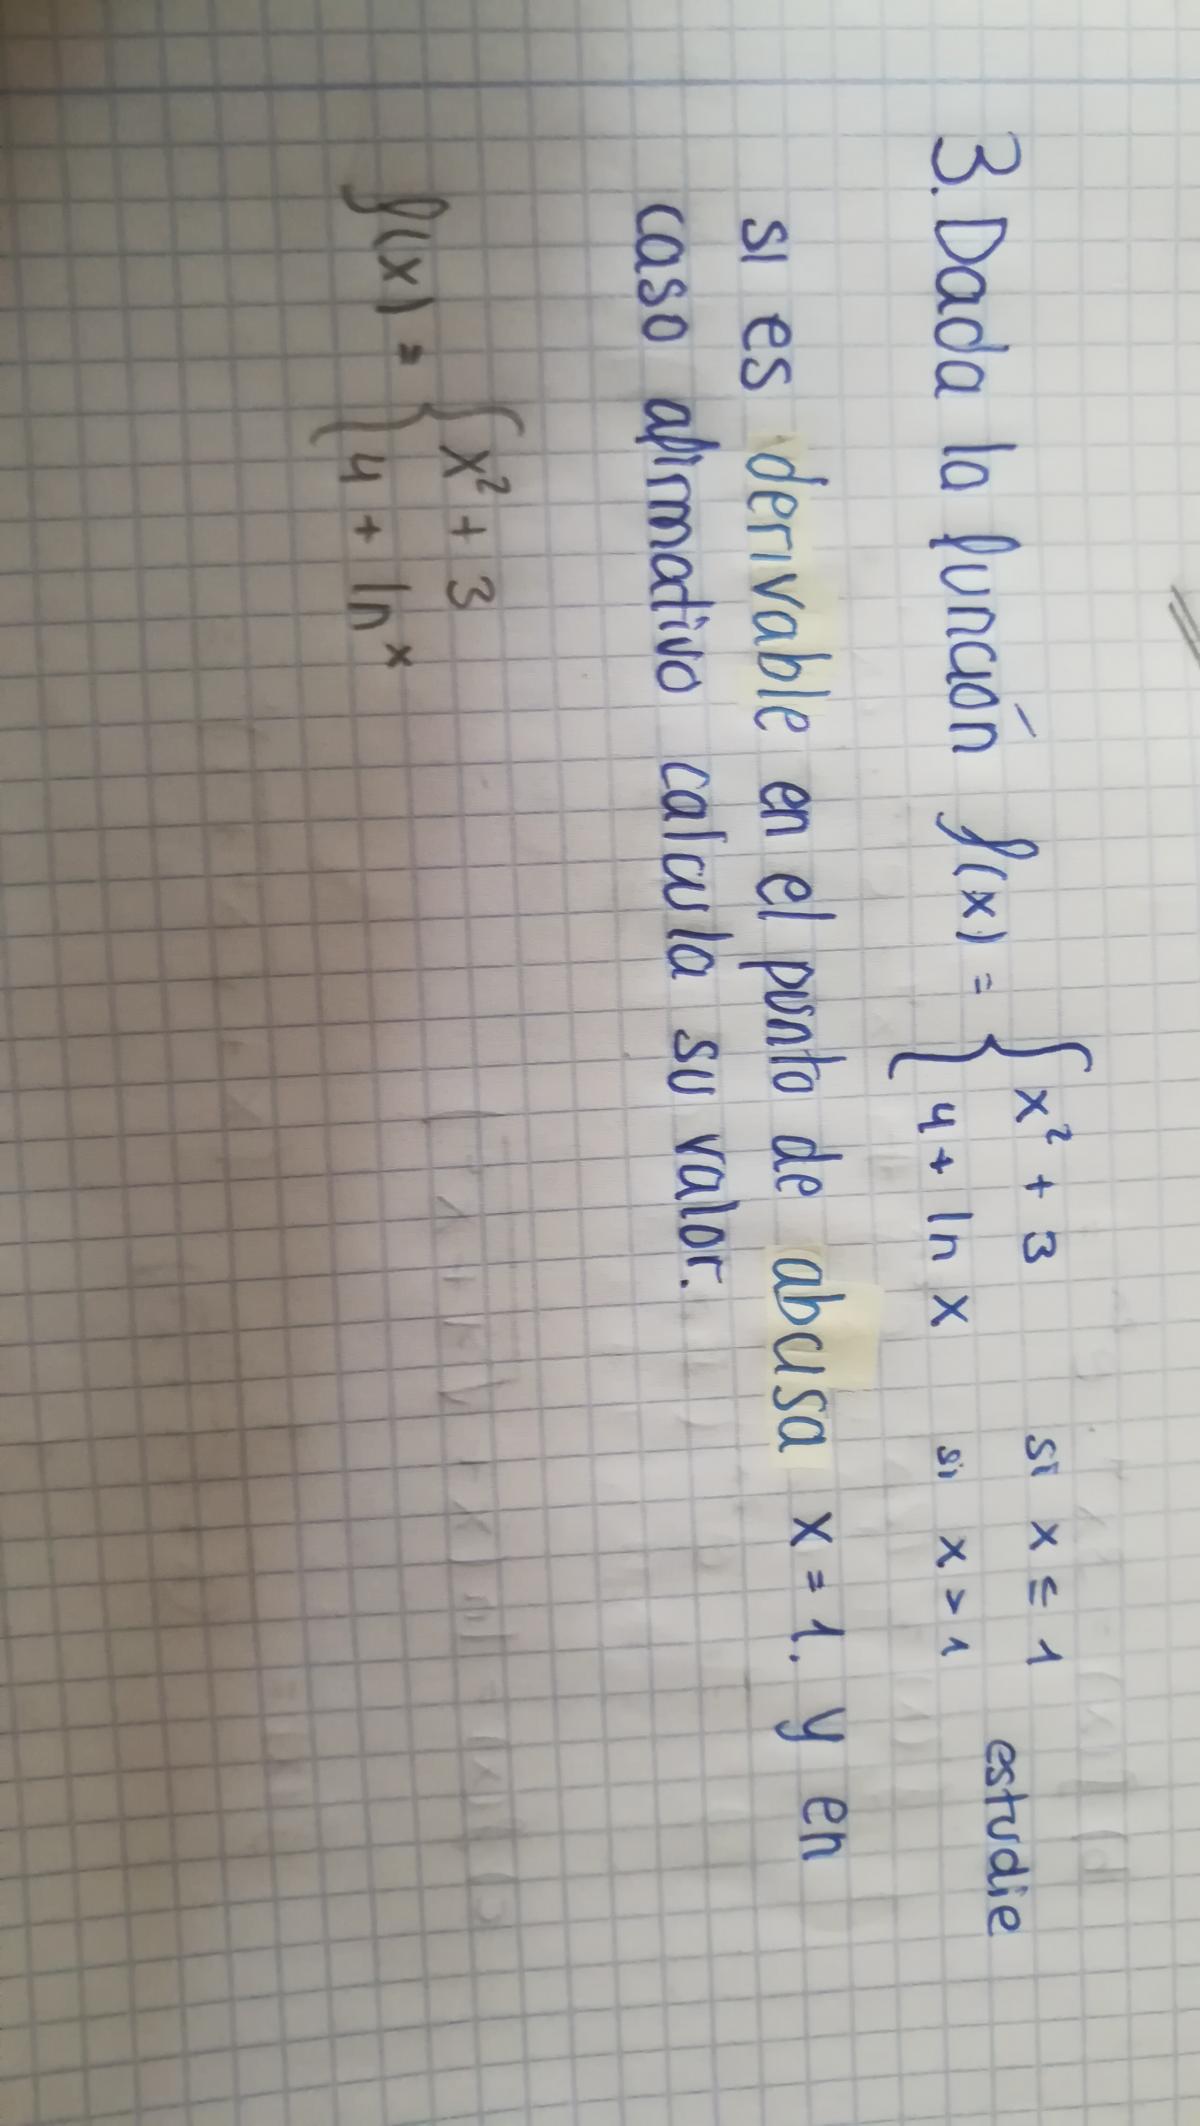 3. Dada la función f(x) = { x² + 3 si x ≤ 1 estudie
4 + ln x si x > 1
si es derivable en el punto de abcisa x = 1. y en
caso afirmativo calcula su valor.
f(x) = { x² + 3
4 + ln x